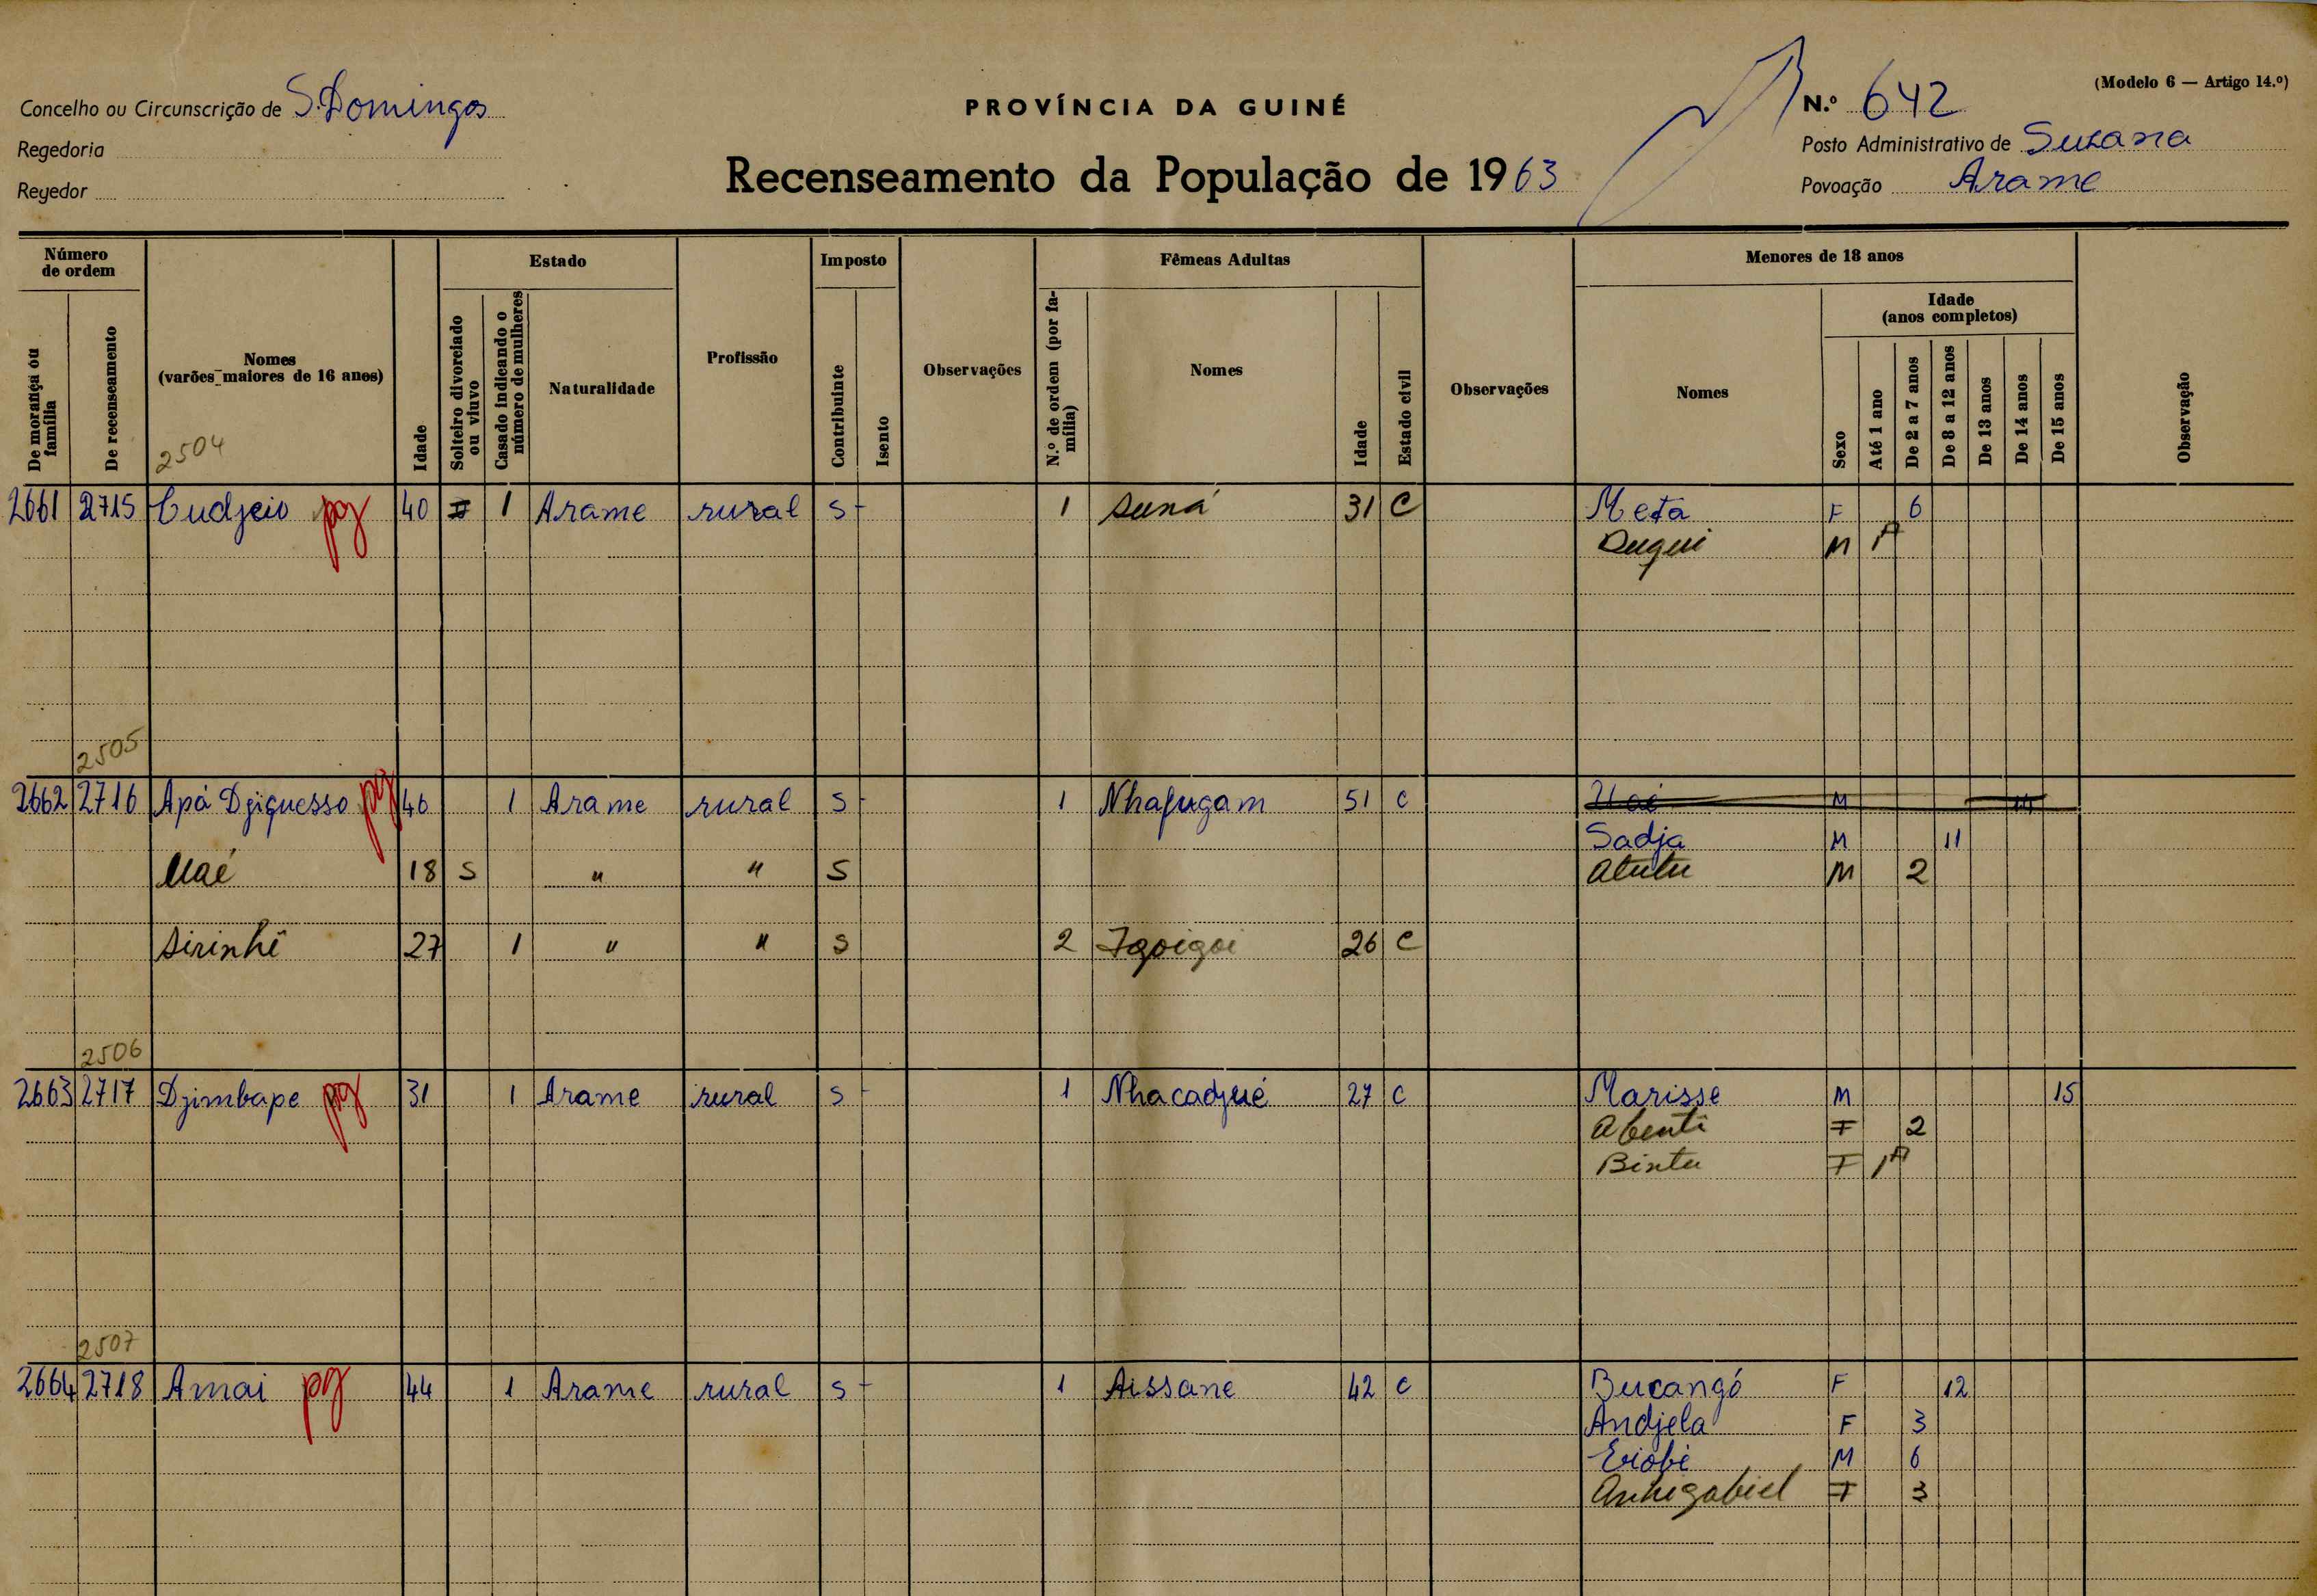 (Modelo 6 — Artigo 14.º)
Concelho ou Circunscrição de S. Domingos
PROVÍNCIA DA GUINÉ
N.º 642
Regedoria
Posto Administrativo de Suzana
Regedor
Recenseamento da População de 1963
Povoação Arame
Número de ordem
Estado
Imposto
Fêmeas Adultas
Menores de 18 anos
Idade (anos completos)
De morança ou família
De recenseamento
Nomes (varões maiores de 16 anos)
Idade
Solteiro divorciado ou viuvo
Casado indicando o número de mulheres
Naturalidade
Profissão
Contribuinte
Isento
Observações
N.º de ordem (por família)
Nomes
Idade
Estado civil
Observações
Nomes
Sexo
Até 1 ano
De 2 a 7 anos
De 8 a 12 anos
De 13 anos
De 14 anos
De 15 anos
Observação
2504
2661 2715 Cudjeio pg 40 1 Arame rural S 1 Suná 31 C Meta F 6
Dugui M 1A
2505
2662 2716 Apá Djiquesso pg 46 1 Arame rural S 1 Nhafugam 51 C M
Sadja M 11
Uaé 18 S " " S Atutu M 2
Sirinhê 27 1 " " S 2 26 C
2506
2663 2717 Djimbape pg 31 1 Arame rural S 1 Nhacadjué 27 C Marisse M 15
Abenti F 2
Bintu F 1A
2507
2664 2718 Amai pg 44 1 Arame rural S 1 Aissane 42 C Bucangó F 12
Andjela F 3
M 6
F 3